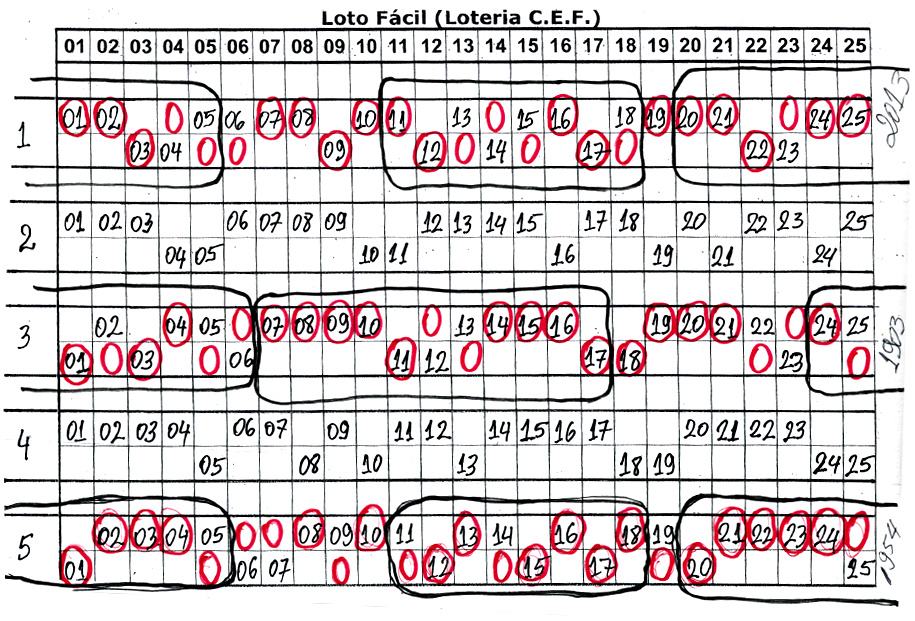 Loto Fácil (Loteria C.E.F.)
01 02 03 04 05 06 07 08 09 10 11 12 13 14 15 16 17 18 19 20 21 22 23 24 25
1 01 02 05 06 07 08 10 11 13 15 16 18 19 20 21 24 25 2013
03 04 09 12 14 17 22 23
2 01 02 03 06 07 08 09 12 13 14 15 17 18 20 22 23 25
04 05 10 11 16 19 21 24
3 02 04 05 07 08 09 10 13 14 15 16 19 20 21 22 24 25 1903
01 03 06 11 12 17 18 23
4 01 02 03 04 06 07 09 11 12 14 15 16 17 20 21 22 23
05 08 10 13 18 19 24 25
5 02 03 04 05 08 09 10 11 13 14 16 18 19 21 22 23 24 1954
01 06 07 12 15 17 20 25